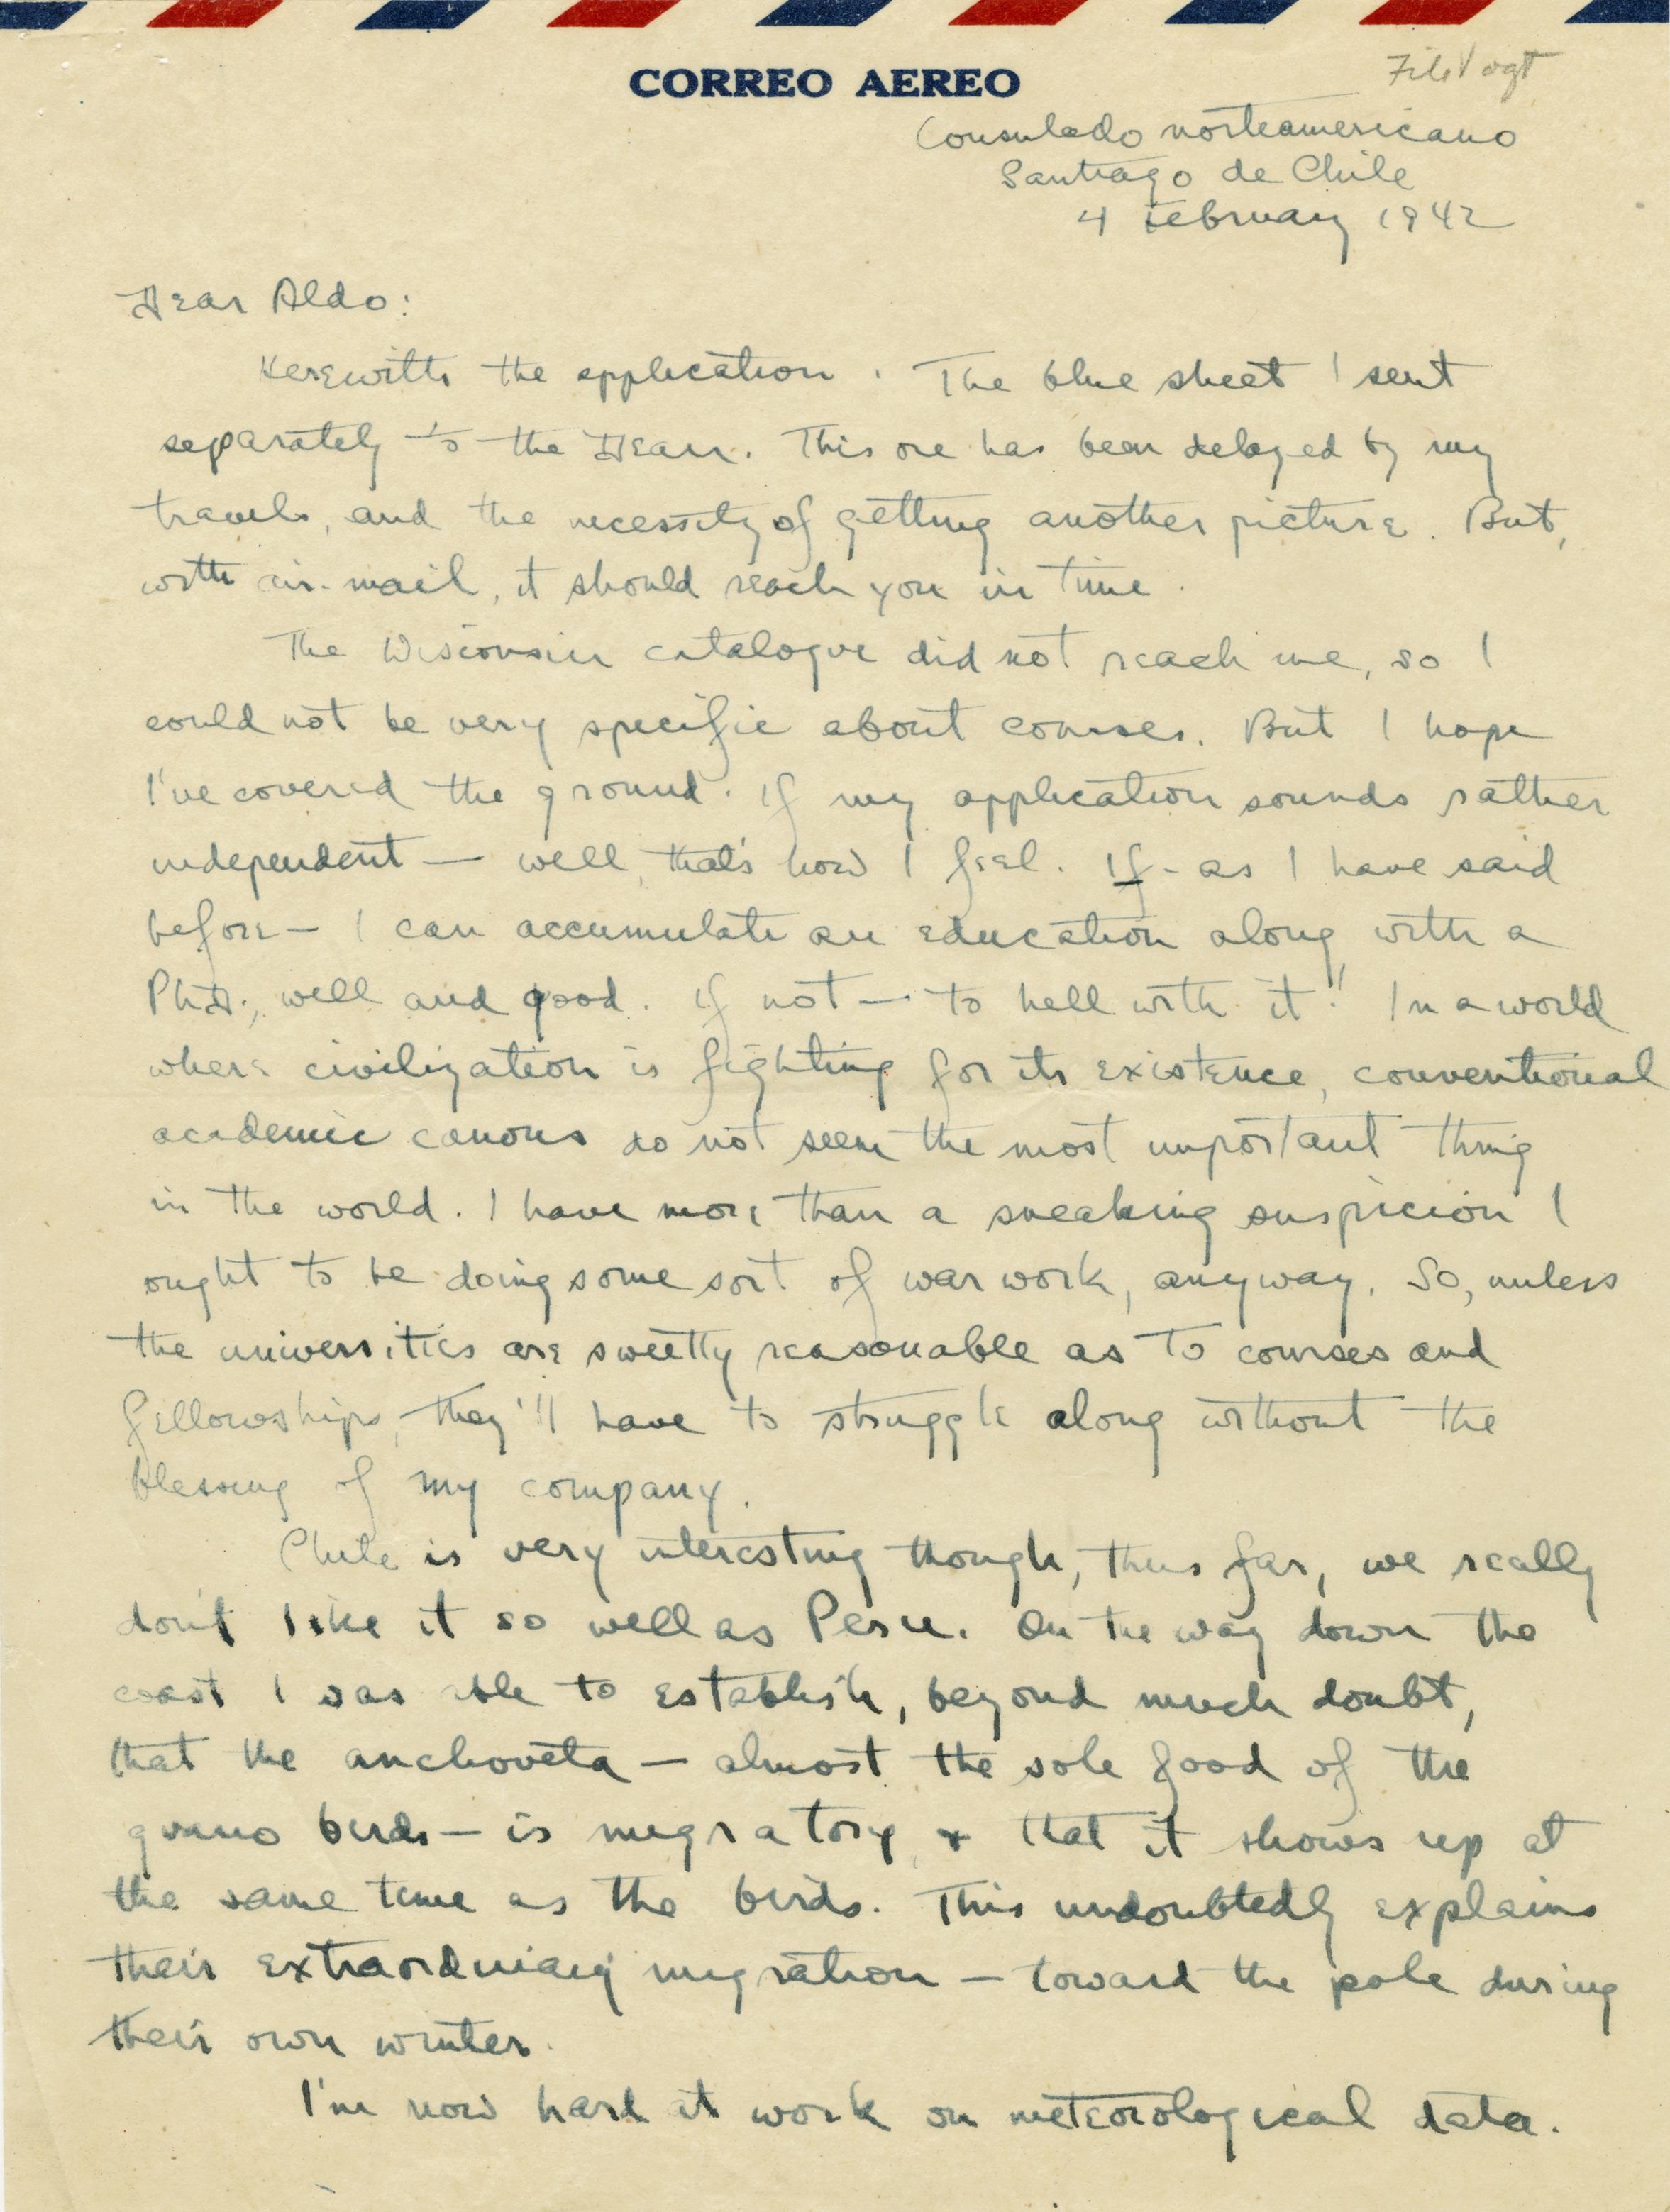 CORREO AEREO
File Vogt
Consulado norteamericano
Santiago de Chile
4 February 1942
Dear Aldo:
Herewith the application. The blue sheet I sent
separately to the Dean. This one has been delayed by my
travels, and the necessity of getting another picture. But,
with air-mail, it should reach you in time.
The Wisconsin catalogue did not reach me, so I
could not be very specific about courses. But I hope
I've covered the ground. If my application sounds rather
independent — well, that's how I feel. If - as I have said
before - I can accumulate an education along with a
Ph.D., well and good. If not — to hell with it! In a world
where civilization is fighting for its existence, conventional
academic canons do not seem the most important thing
in the world. I have more than a sneaking suspicion I
ought to be doing some sort of war work, anyway. So, unless
the universities are sweetly reasonable as to courses and
fellowships, they'll have to struggle along without the
blessing of my company.
Chile is very interesting though, thus far, we really
don't like it so well as Peru. On the way down the
coast I was able to establish, beyond much doubt,
that the anchoveta — almost the sole food of the
guano birds — is migratory, & that it shows up at
the same time as the birds. This undoubtedly explains
their extraordinary migration — toward the pole during
their own winter.
I'm now hard at work on meteorological data.